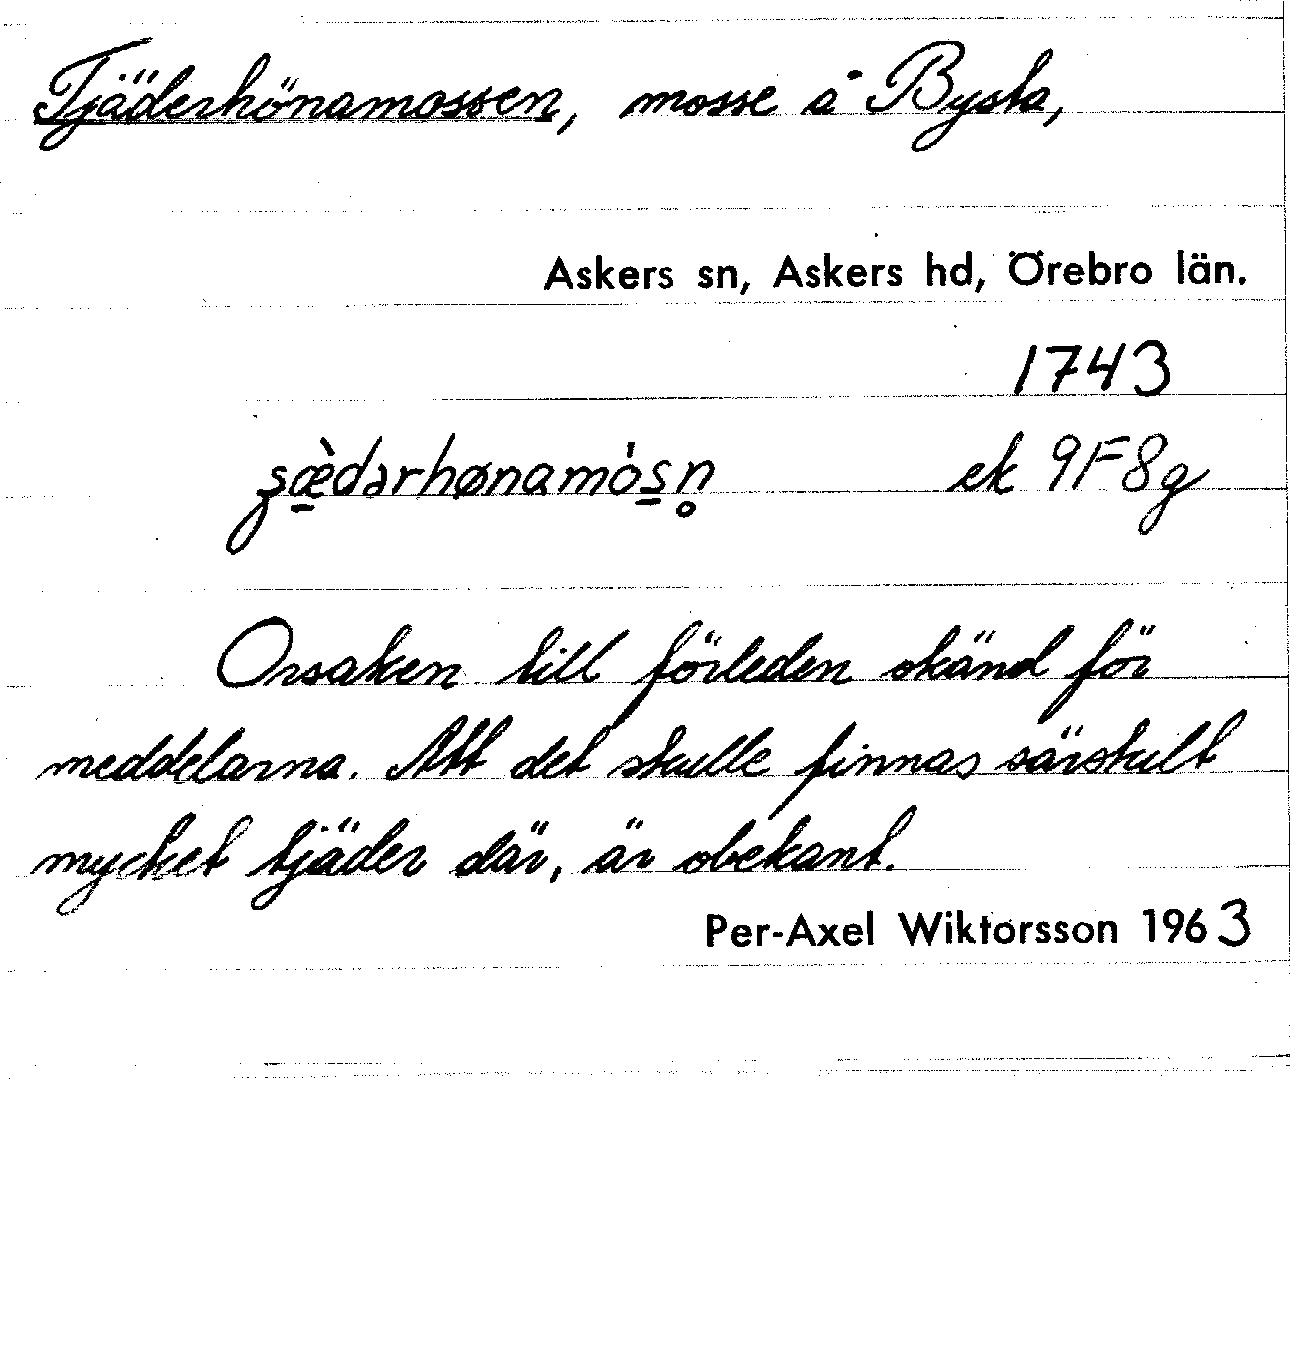 Tjäderhönamossen, mosse å Bysta,
Askers sn, Askers hd, Örebro län.
1743
ek 9F8g
Orsaken till förleden okänd för
meddelarna. Att det skulle finnas särskilt
mycket tjäder där, är obekant.
Per-Axel Wiktorsson 1963